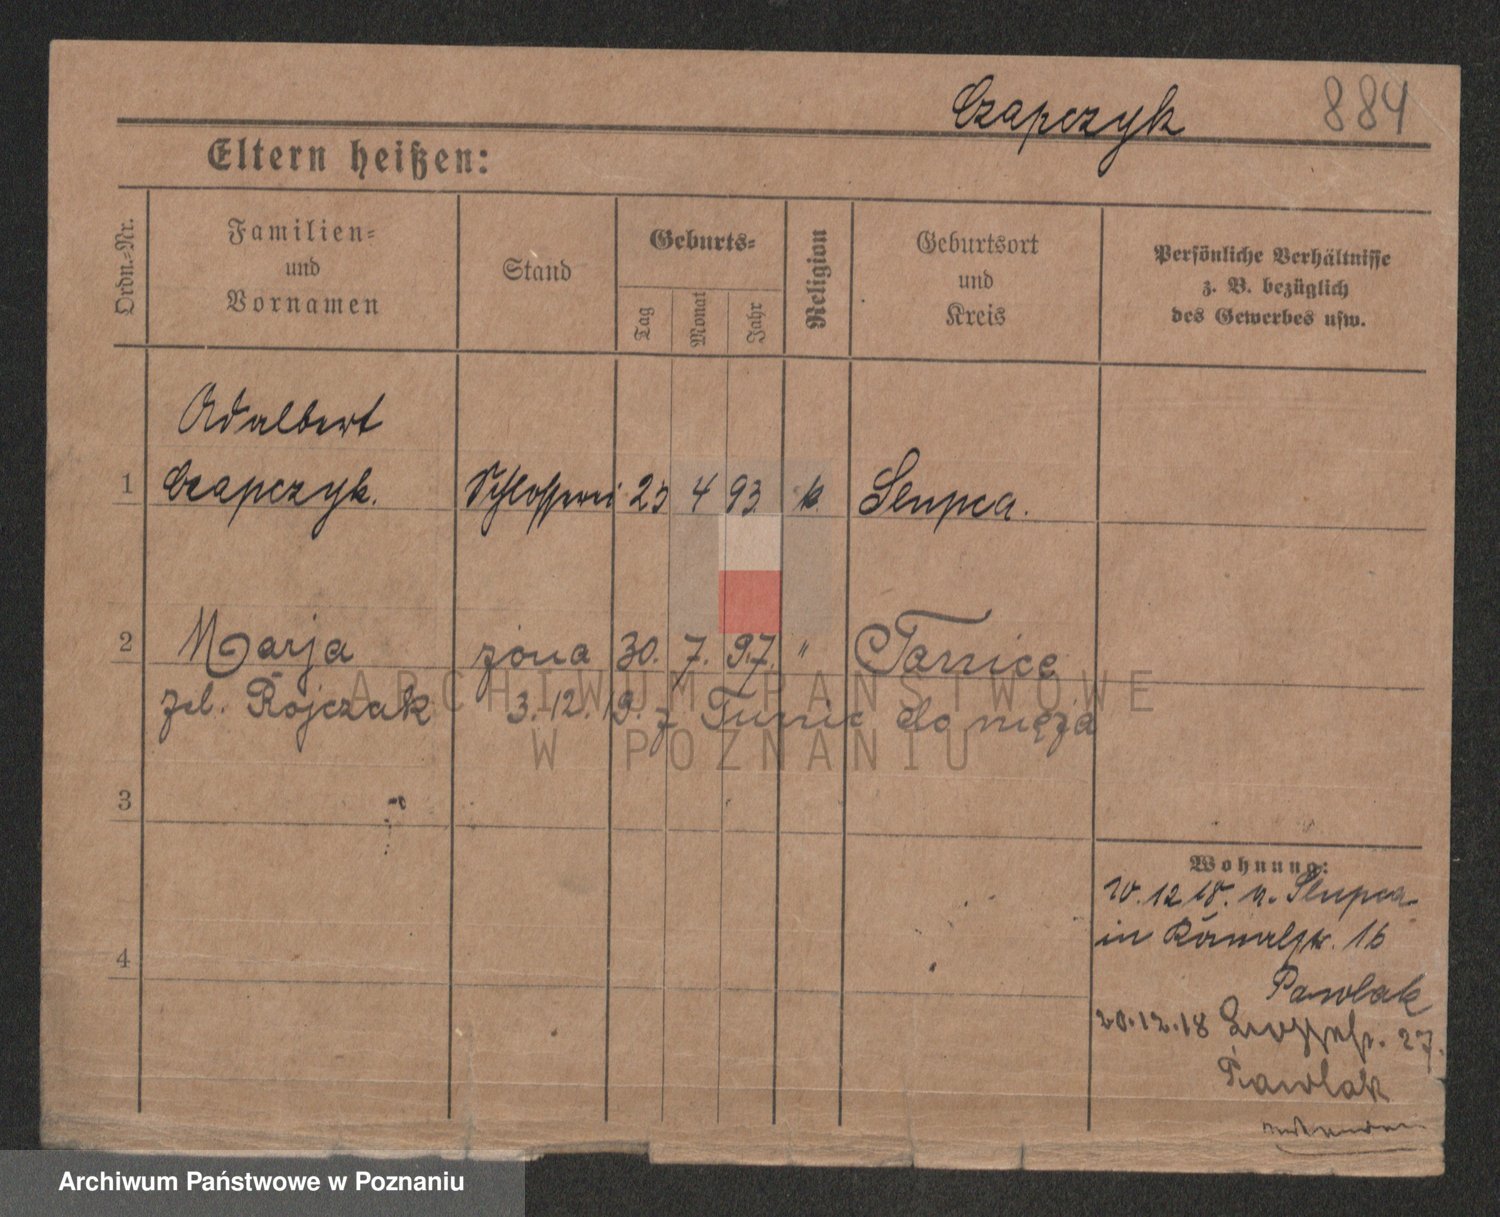 Czapczyk 884
Eltern heißen:
Ordn.-Nr.
Familien-
und
Vornamen
Stand
Geburts-
Tag
Monat
Jahr
Religion
Geburtsort
und
Kreis
Persönliche Verhältnisse
z. B. bezüglich
des Gewerbes usw.
Adalbert
1 Czapczyk. 25 4 93 k Slupca.
2 Marja żona 30. 7. 97. "
Rojczak 3.12.19. z do męża
3
4
Wohnung:
12 18. Slupca
in 16
Pawlak
20.12.18 27.
Pawlak
ARCHIWUM PAŃSTWOWE
W POZNANIU
Archiwum Państwowe w Poznaniu